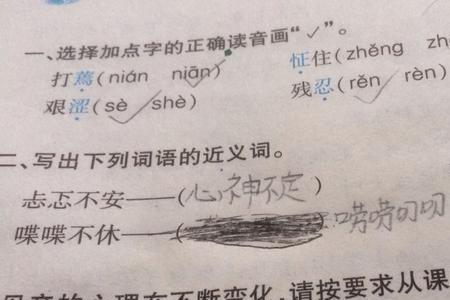 一、选择加点字的正确读音画“✓”。
打蔫(nián niān) 怔住(zhěng zh
艰涩(sè shè) 残忍(rěn rèn)
二、写出下列词语的近义词。
忐忑不安——(心神不定)
喋喋不休——( 唠唠叨叨
变化,请按要求从课